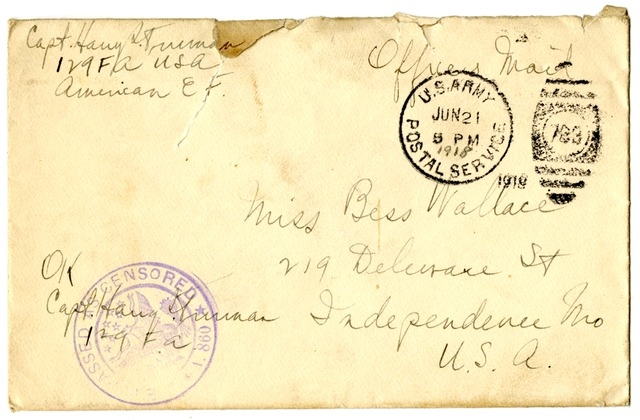 Capt. Harry S. Truman
129 F.A. U.S.A
American E.F.
Officers Mail
U.S. ARMY
JUN 21
5 PM
1918
POSTAL SERVICE
1918
Miss Bess Wallace
219 Delaware St
Independence Mo
U.S.A.
OK
Capt. Harry S. Truman
129 F.A.
PASSED AS CENSORED